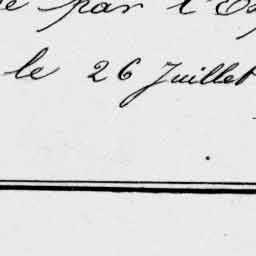 par l'Ex
le 26 Juillet